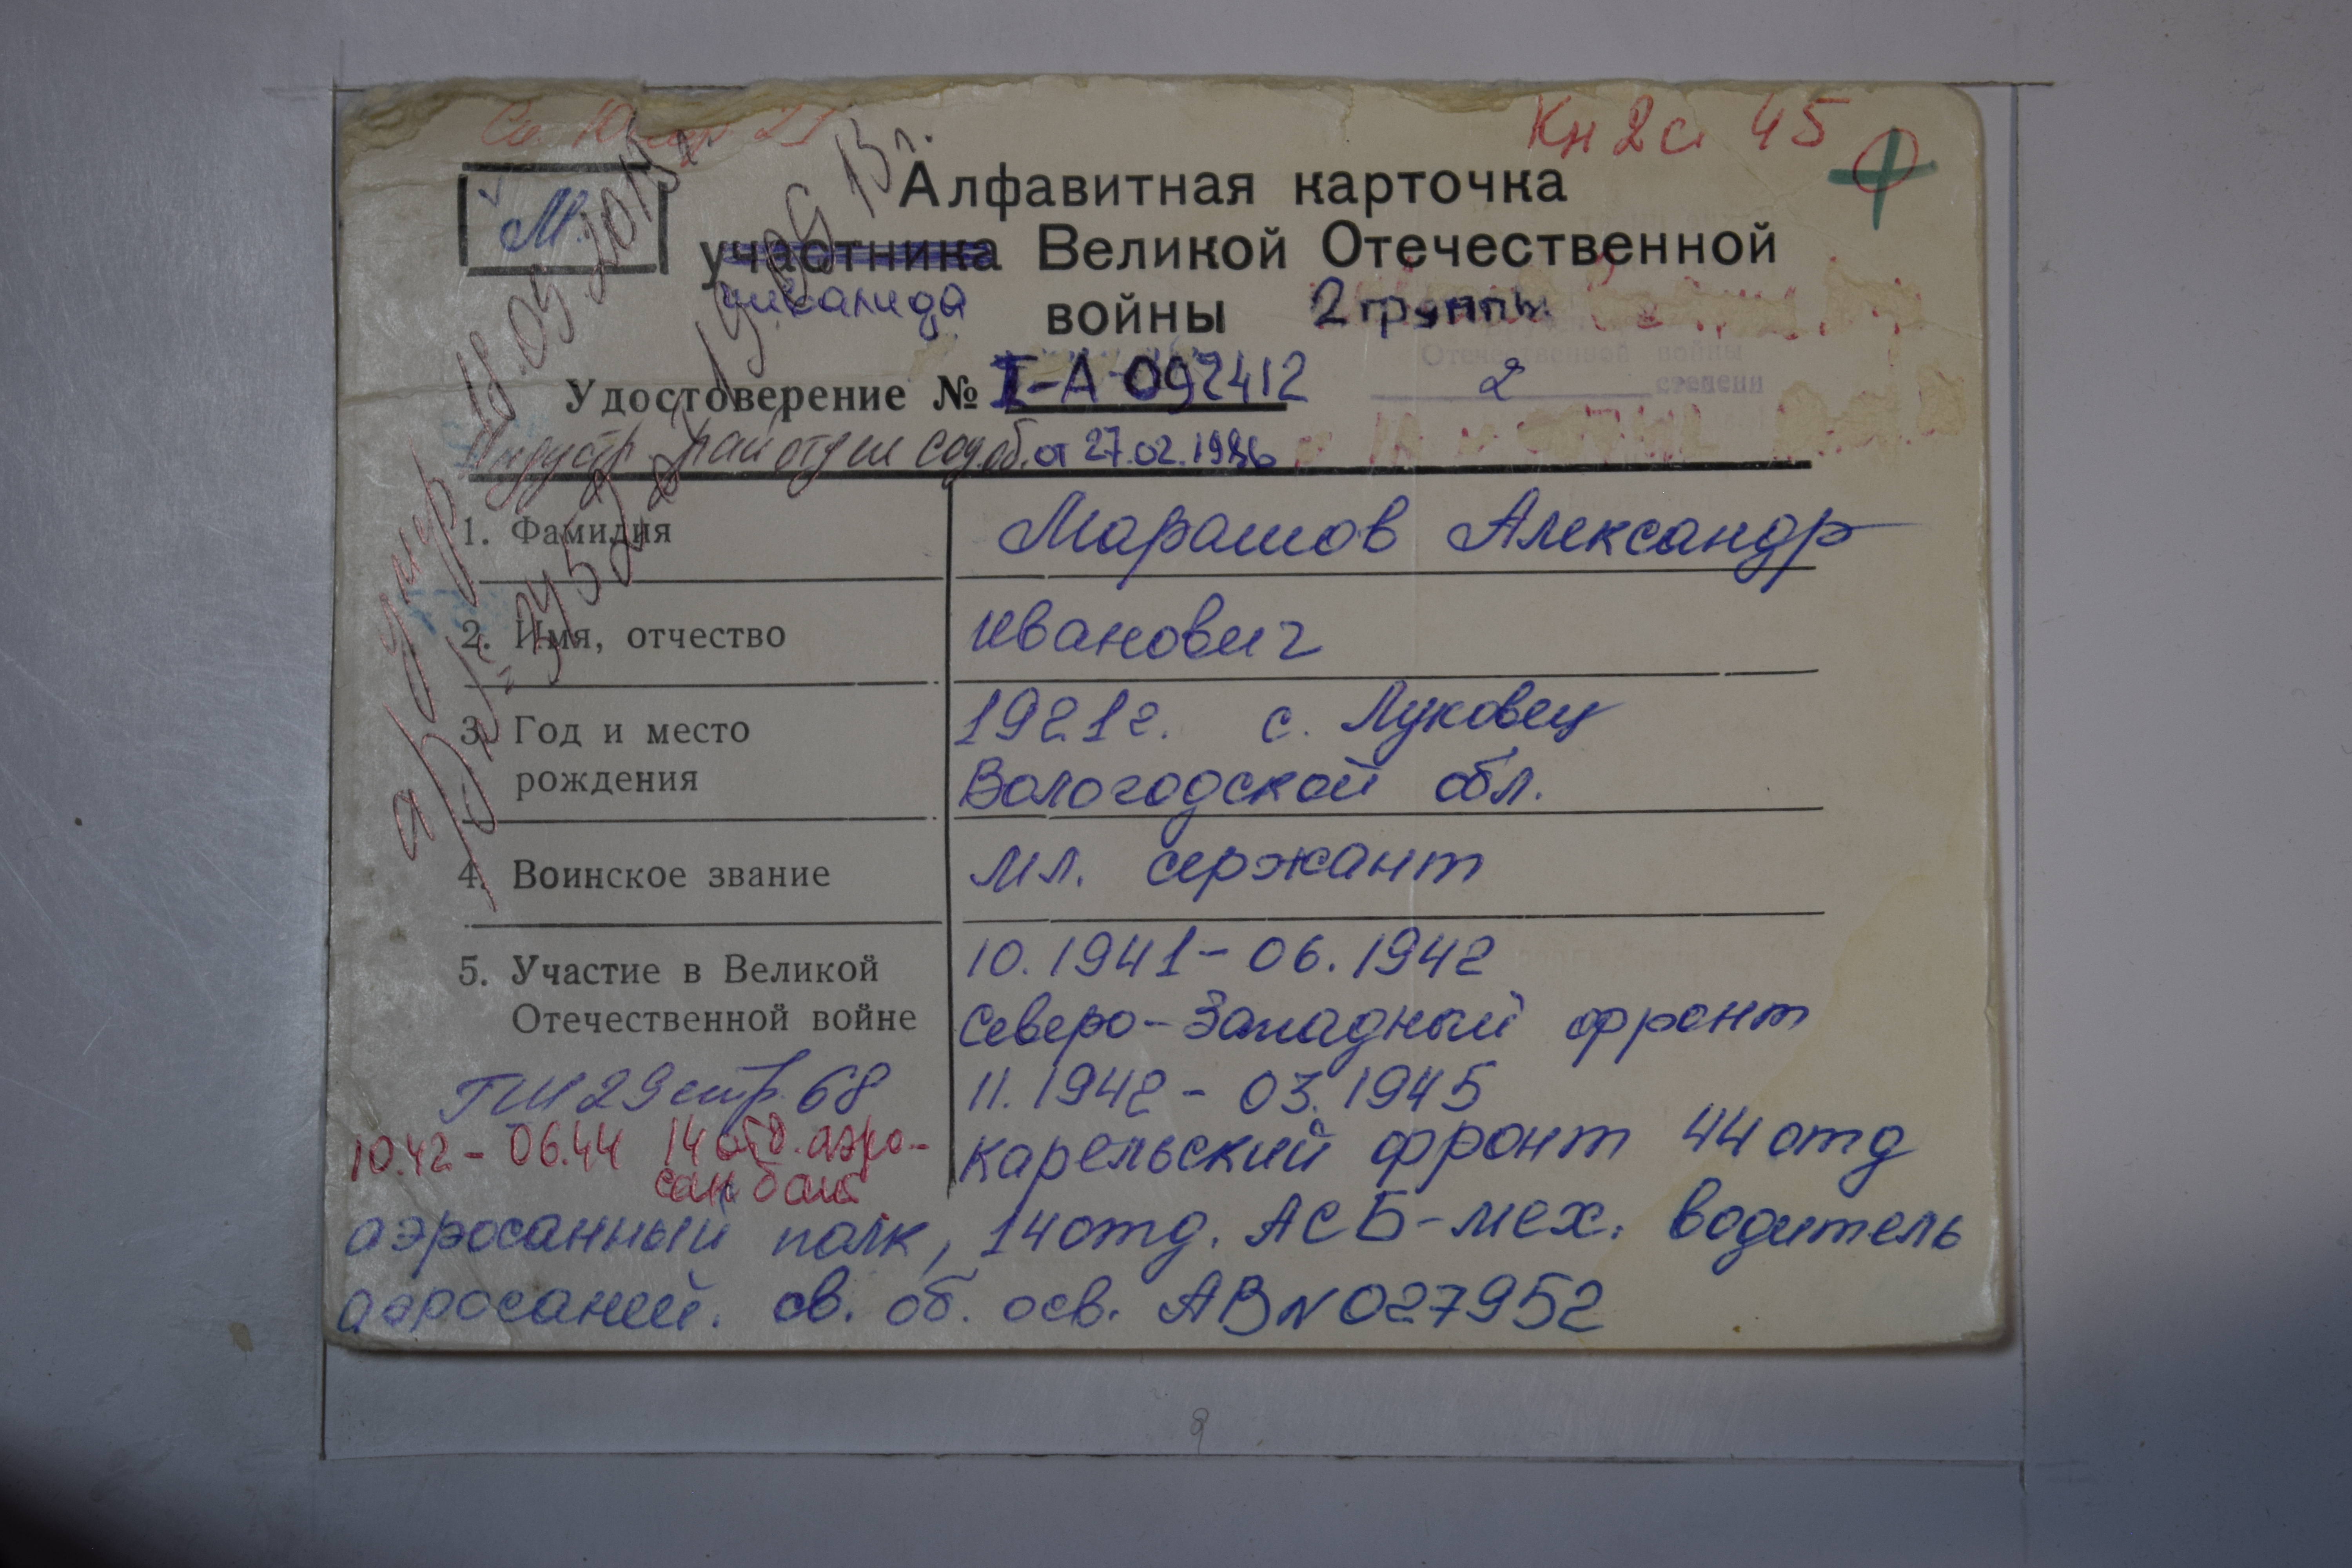 Кн 2 с 45
М
Алфавитная карточка
участника Великой Отечественной
инвалида войны 2 группы
Отечественной войны
2 степени
Удостоверение № I-А 092412
Индустр. рай отдел соц. об. от 27.02.1986
1. Фамилия Марашов Александр
2. Имя, отчество Иванович
3. Год и место 1921г. с. Луковец
рождения Вологодской обл.
4. Воинское звание мл. сержант
5. Участие в Великой 10.1941-06.1942
Отечественной войне Северо-Западный фронт
11.1942-03.1945
стр. 68
10.42-06.44 14 отд. аэро-
сан бат
Карельский фронт 44 отд
аэросанный полк, 14 отд. АСБ-мех. водитель
аэросаней. св. об. осв. АВ N 027952
9